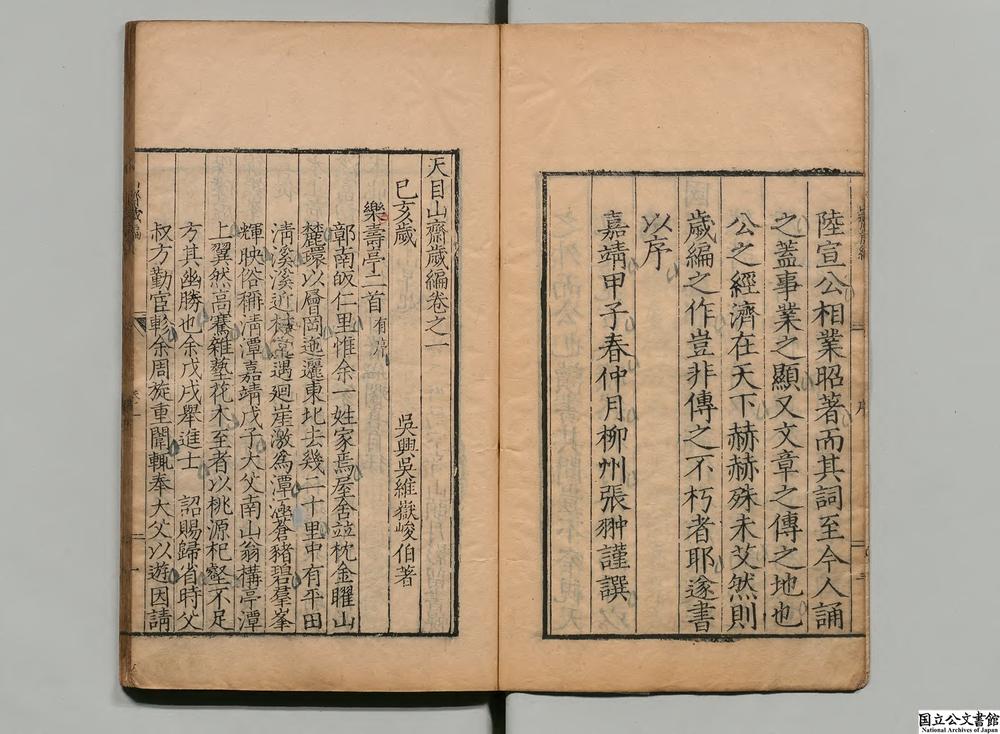 陸宣公相業昭著而其詞至今人誦
之蓋事業之顯又文章之傳之地也
公之經濟在天下赫赫殊未艾然則
歲編之作豈非傳之不朽者耶遂書
以序
嘉靖甲子春仲月柳州張翀謹譔
天目山齋歲編卷之一
吳興吳維嶽峻伯著
己亥歲
樂壽亭二首有序
鄣南皈仁里惟余一姓家焉屋舍竝枕金矅山
麓環以層岡迤邐東北去幾二十里中有平田
清溪溪近村常遇迴崖激為潭涵蒼豬碧羣峯
輝映俗稱清潭嘉靖戊子大父南山翁構亭潭
上翼然高騫雜藝花木至者以桃源杞壑不足
方其幽勝也余戊戌舉進士 詔賜歸省時父
叔方勤宦轍余周旋重闈輒奉大父以遊因請
序
卷一
一
国立公文書館
National Archives of Japan